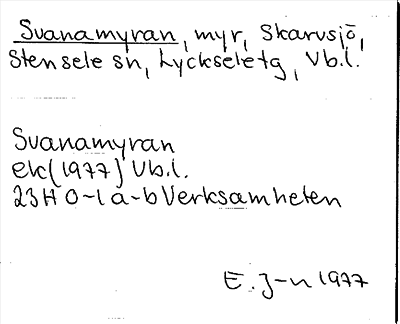 Svanamyran, myr, Skarvsjö,
Stensele sn, Lyckseletg, Vb.l.
Svanamyran
ek(1977) Vb.l.
23H 0-1 a-b Verksamheten
E. J-n 1977